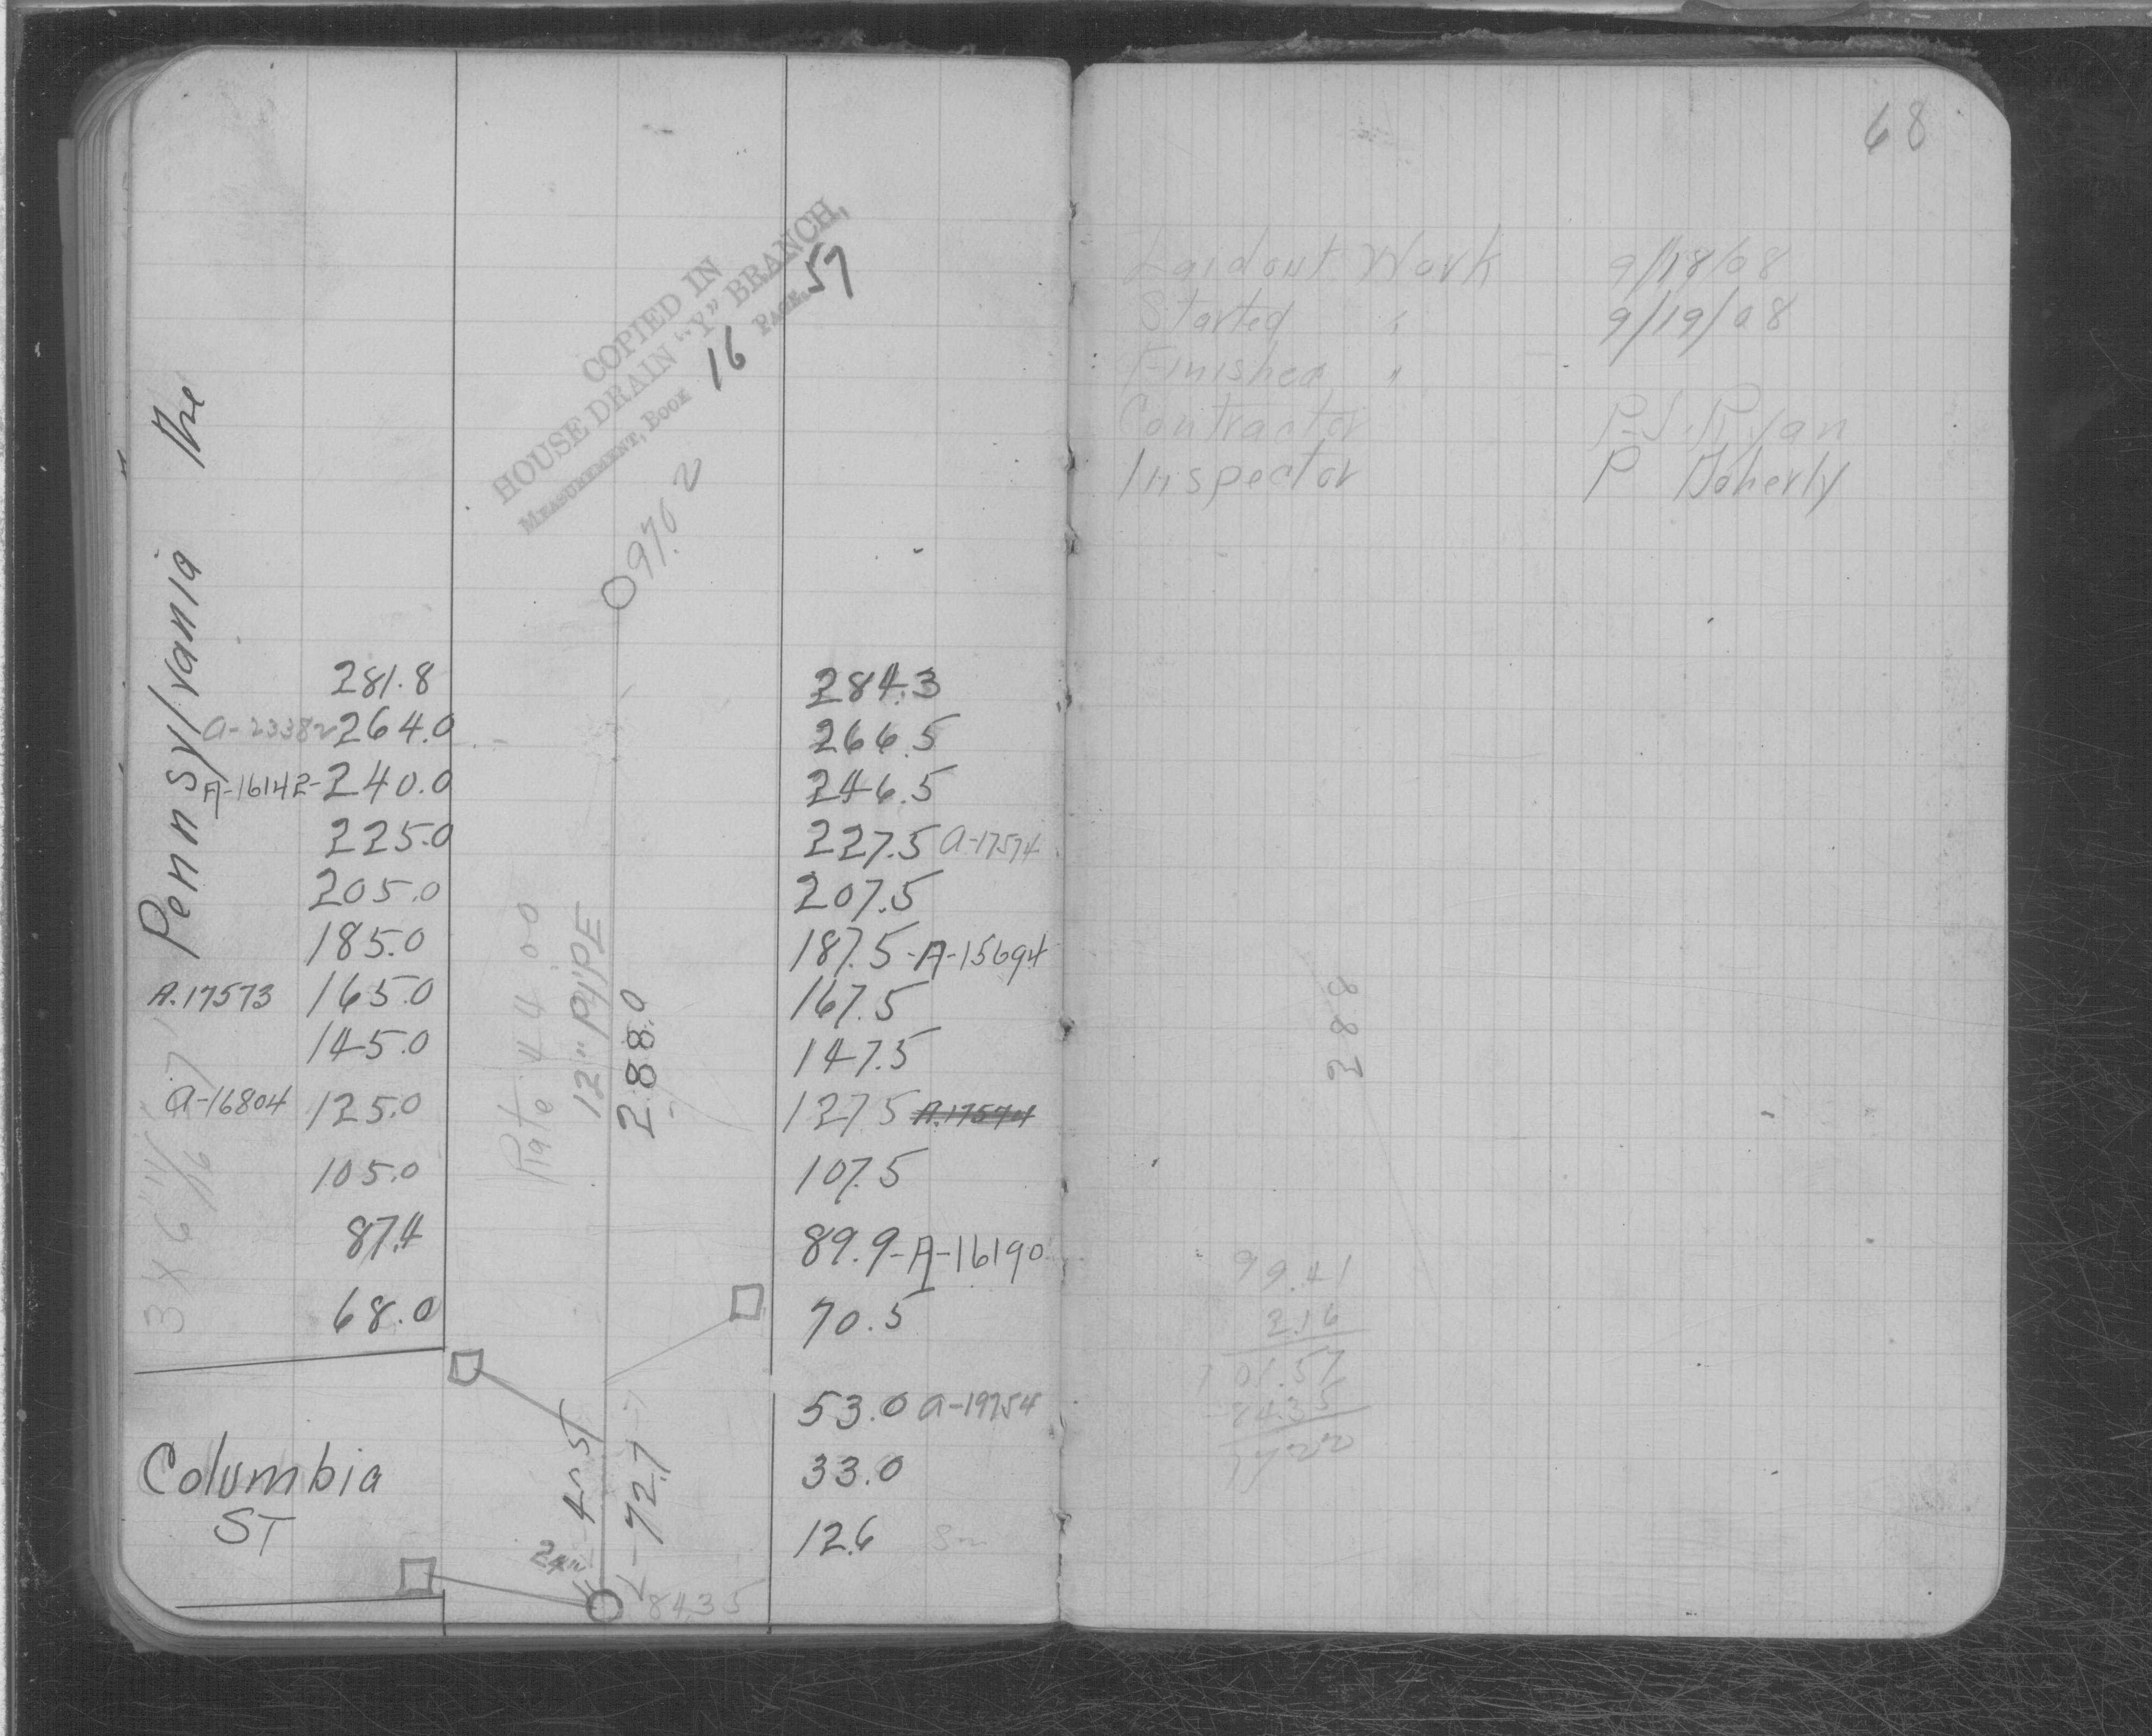 COPIED IN
HOUSE DRAIN "Y" BRANCH,
MEASUREMENT, BOOK 16 PAGE, 57
Pennsylvania Ave
97.02
281.8
a-23382 264.0
A-16142-240.0
225.0
205.0
185.0
A.17573 165.0
145.0
a-16804 125.0
105.0
87.4
68.0
3 X 6
Columbia
ST
12" PIPE
288.0
45.5
72.7
24"
84.35
284.3
266.5
246.5
227.5 a-17574
207.5
187.5-A-15694
167.5
147.5
127.5 A.17574
107.5
89.9-A-16190
70.5
53.0 a-19754
33.0
12.6
68
Laid out Work 9/18/08
Started " 9/19/08
Finished "
Contractor P.J. Ryan
Inspector P Doherty
288
99.41
2.16
101.57